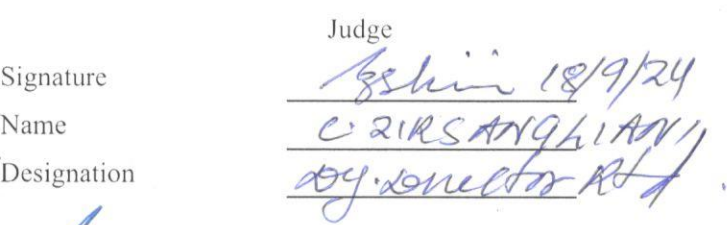 Judge
Signature 18/9/24
Name C. ZIRSANGLIANI,
Designation Dy. Director Rtd.